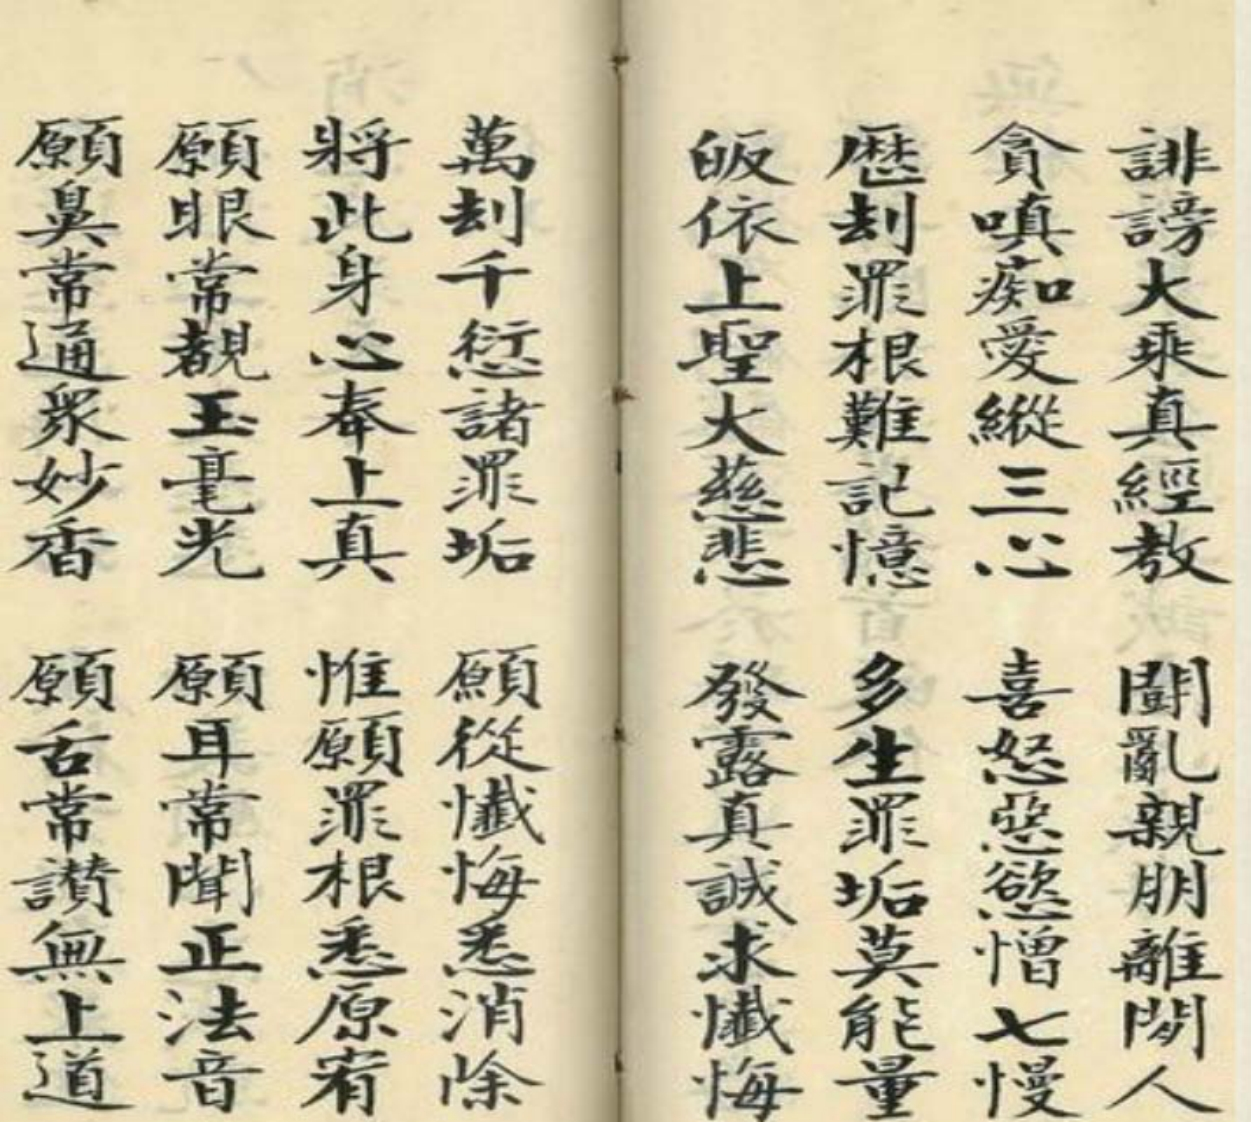 誹謗大乘真經教 鬪亂親朋離間人
貪嗔痴愛縱三心 喜怒惡慾憎七慢
歷刦罪根難記憶 多生罪垢莫能量
皈依上聖大慈悲 發露真誠求懺悔
萬刦千愆諸罪垢 願從懺悔悉消除
將此身心奉上真 惟願罪根悉原宥
願眼常觀玉毫光 願耳常聞正法音
願鼻常通眾妙香 願舌常讚無上道